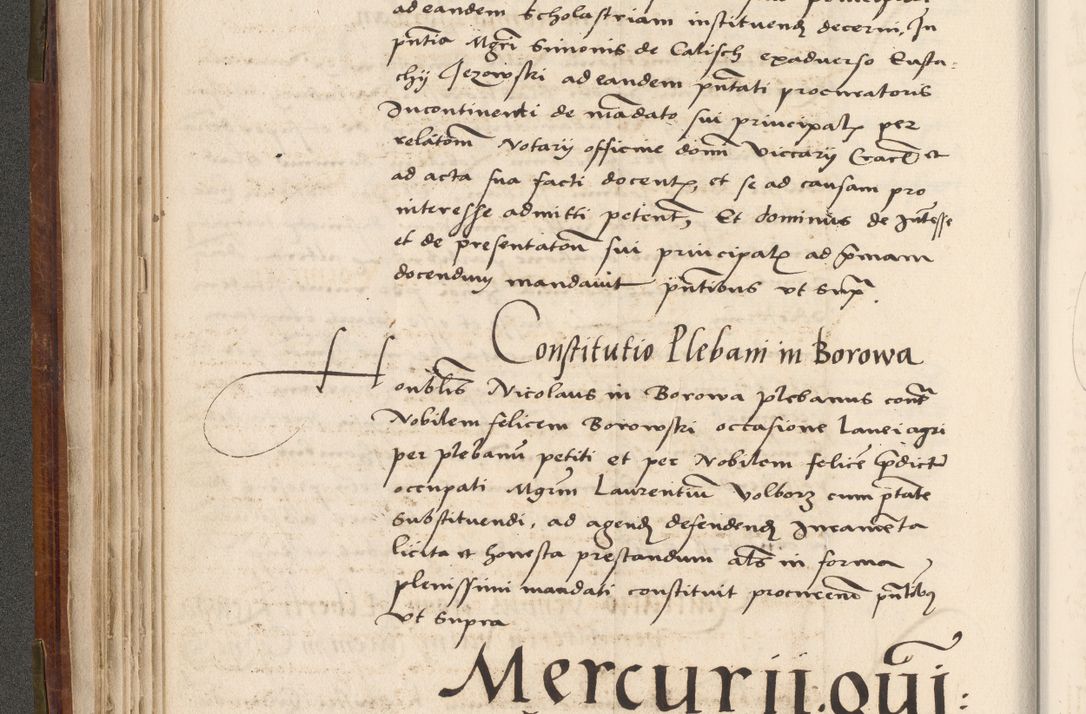 ad eandem Scholastriam instituend decerni, In
pntia Mgri Simonis de Calisch exadverso Eusta-
chij Jezowski ad eandem pntati procuratoris
Incontinenti de mandato sui principal per
relationm Notarij officine domi viccarij Cracen et
ad acta sua facti docent, et se ad causam pro
interesse admitti petent, Et dominus de Intesse
et de presentation sui principal ad primam
docendum mandavit pntibus vt supr.
Constitutio Plebani in Borowa
Honblis Nicolaus in Borowa plebanus cont
Nobilem felicem Borowski occasione Lanei agri
per plebanu petiti et per Nobilem felice pdictu
occupati Mgrm Laurentiu Volborz cum ptate
substituendi, ad agend defendend Iuramenta
licita et honesta prestandum als in forma
plenissimi mandati constituit procurem pntibus
vt supra
Mercurij. qui: